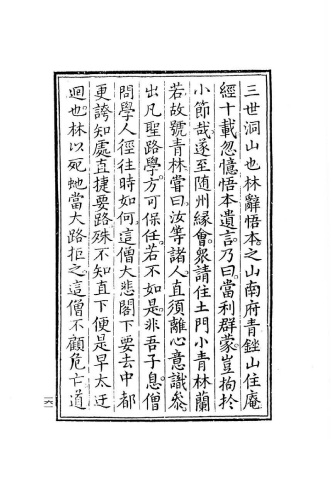 三世洞山也林辭悟本之山南府青銼山住庵
經十載忽憶悟本遺言乃曰當利群蒙豈拘於
小節哉遂至随州縁會衆請住土門小青林蘭
若故號青林嘗曰汝等諸人直須離心意識叅
出凡聖路學方可保任若不如是非吾子息僧
問學人徑往時如何這僧大悲閣下要去中都
更誇知處直捷要路殊不知直下便是早太迂
迴也林以死虵當大路拒之這僧不顧危亡道
一六